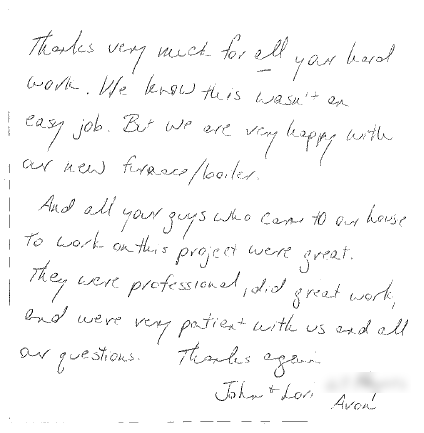 Thanks very much for all your hard
work. We know this wasn't an
easy job. But we are very happy with
our new furnace/boiler.
And all your guys who came to our house
to work on this project were great.
They were professional, did great work,
and were very patient with us and all
our questions. Thanks again
John + Lori
Avon